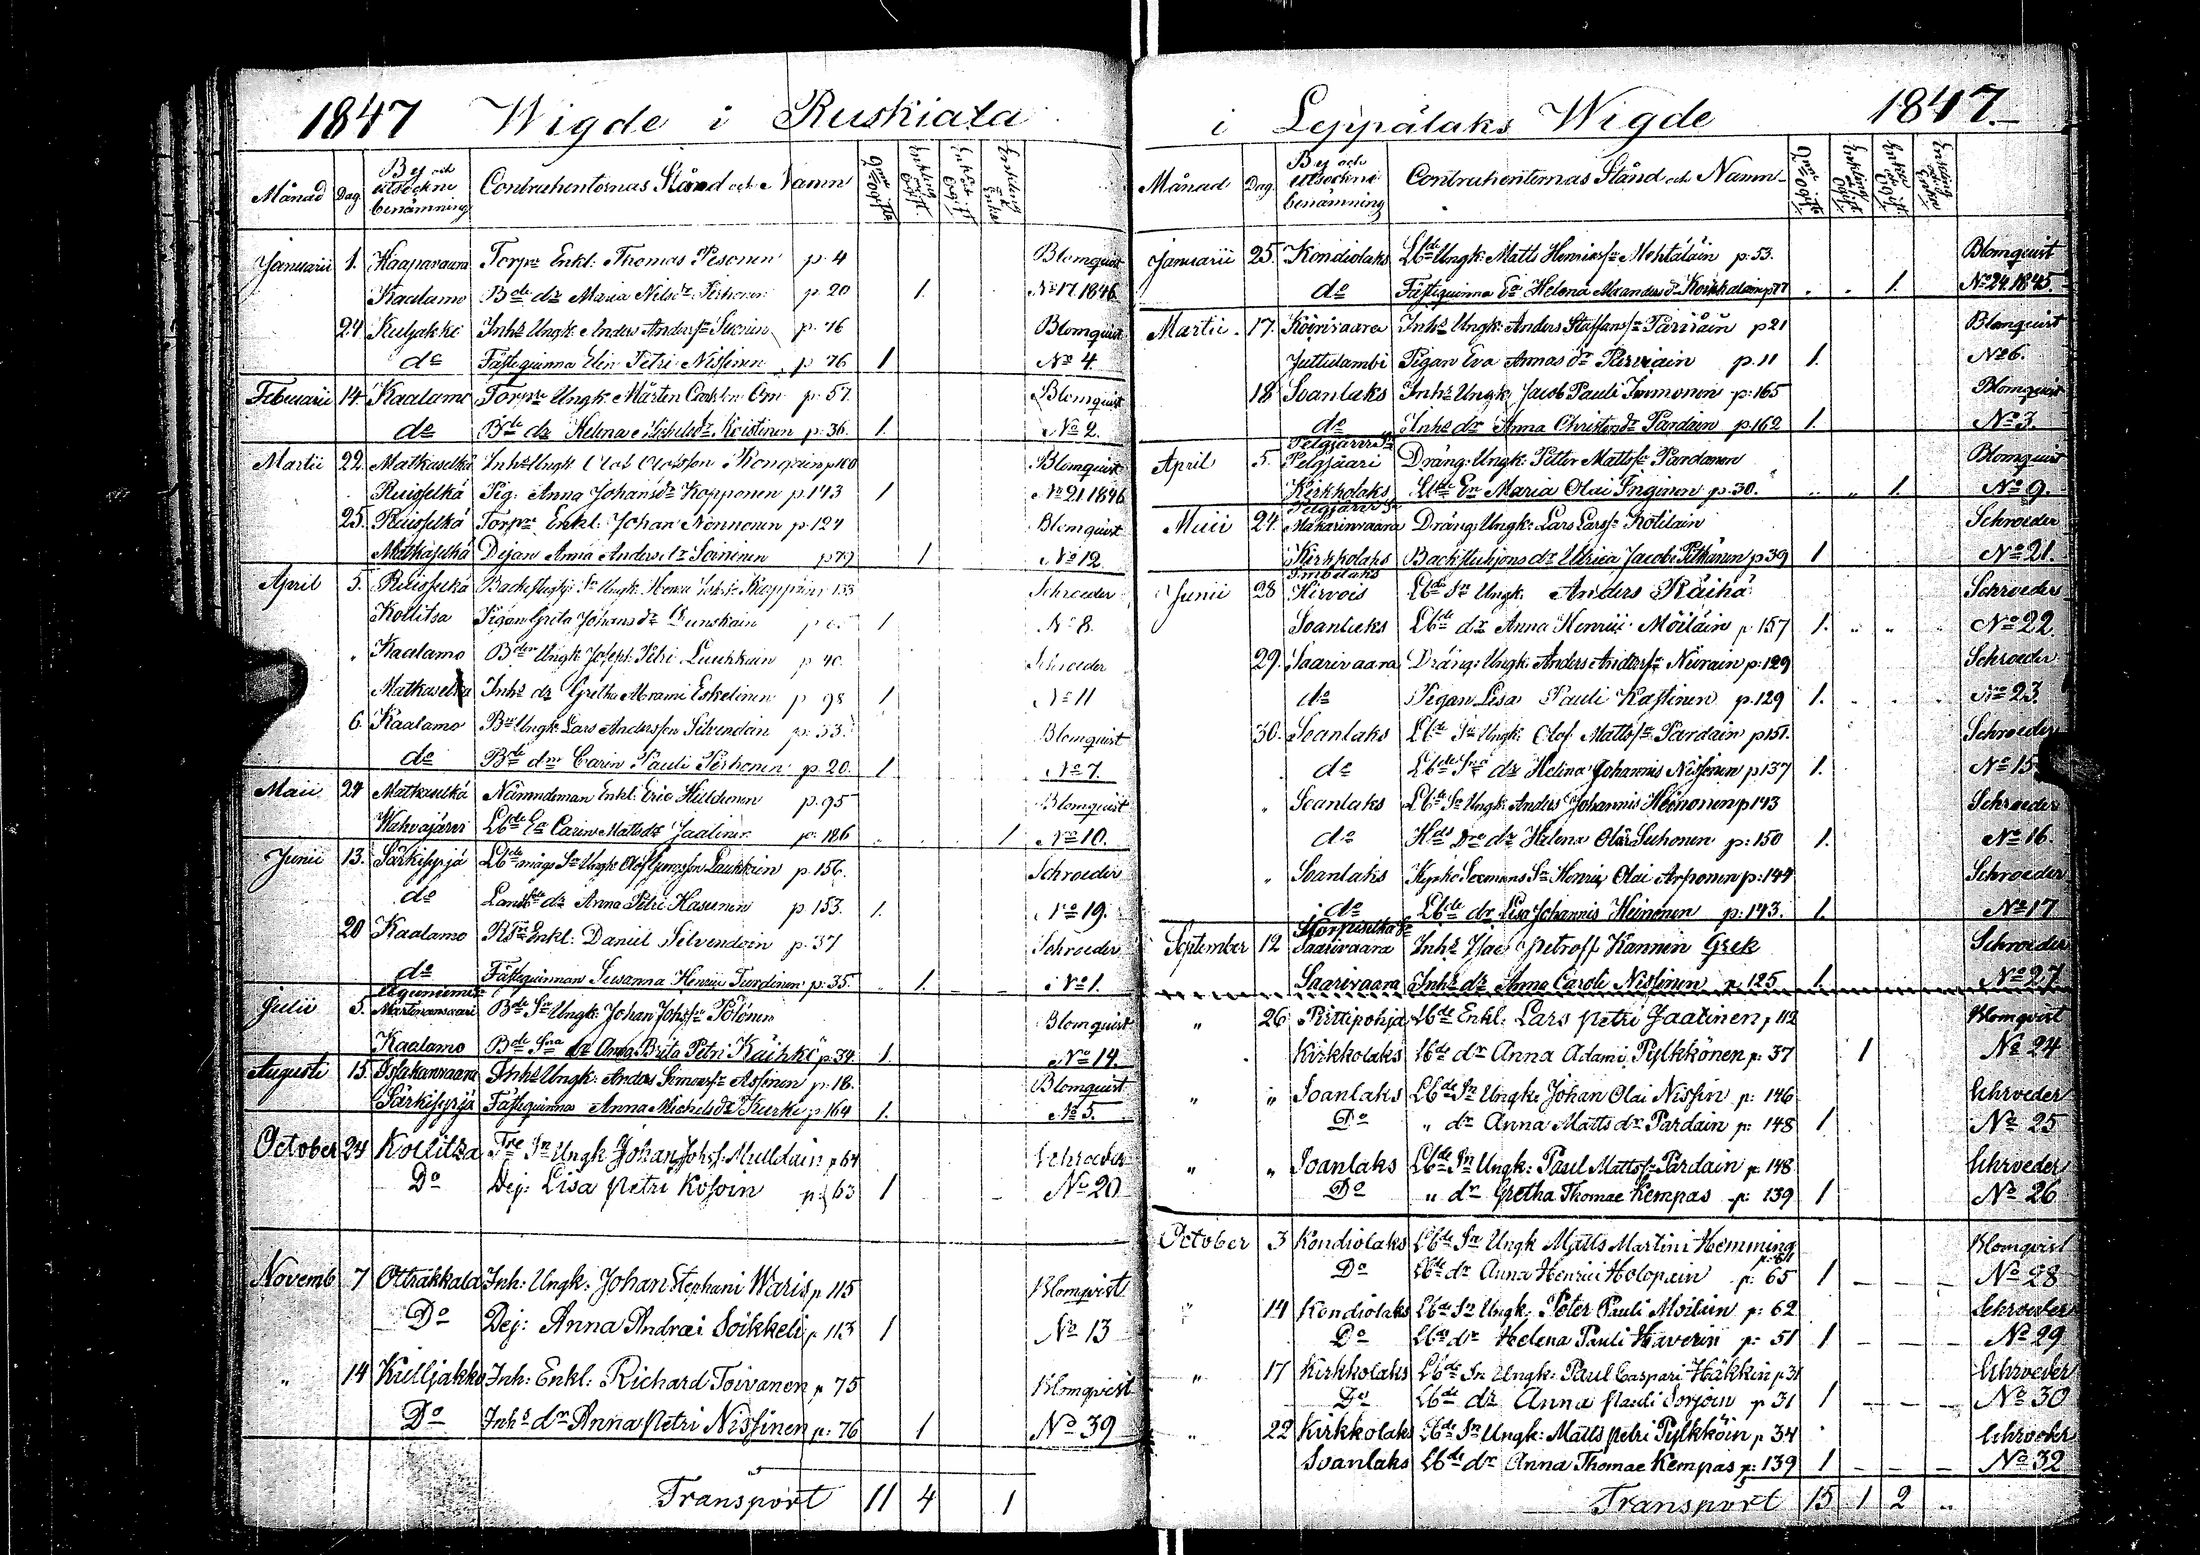 1847 Wigde i Ruskiala
Månad Dag By och utsockne benämning Contrahenternas Stånd och Namn
Januarii 1. Kaaparaara Torpr Enkl: Thomas Pesonen p. 4 Blomquist
Kaalamo Bde dr Maria Nilsdr Perhonen p. 20 1. No 17. 1846
24 Kuljakko Inhs Ungk: Anders Anderss. p. 76 Blomquist
do Fästeqvinna Elin Petri Nissinen p. 76 1 No 4.
Februarii 14. Kaalamo Torpr Ungk. Mårten p. 57. Blomquist
do Bde dr Helena Michelsdr Koistinen p. 36. 1. No 2.
Martii 22. Matkaselkä Inhs Ungk. Olof Olofsson p. 100 Blomquist
Ruisselkä Pig: Anna Johansdr Kopponen p. 143 1 No 21 1846
25. Ruisselkä Torpr Enkl: Johan Nonnonen p. 124 Blomquist
Matkaselkä Dejan Anna Andersdr Soininen p 79 1 No 12.
April 5. Ruisselkä Ungk. Henr. p. 133 Schroeder
Kollitsa Pigan Greta Johansdr 1 No 8.
" Kaalamo Bden Ungk. Joseph Petri Luukkain p 40. Schroeder
Matkaselka Inhs dr Gretha Abrami Eskelinen p 98 1 No 11
6. Kaalamo Bde Ungk. Lars Andersson Silvendoin p. 33. Blomquist
do Bde dr Carin Pauli Perhonen p. 20. 1 No 7.
Maii 24 Matkaselkä Nämndeman Enkl. Eric Hildenen p. 95 Blomquist
Wahvajärvi Lbde Ea Carin Mattsdr Jaatinen p. 186 1 No 10.
Junii 13. Särkisyrjä Lbde Sn Ungk Olof Laukkain p. 156. Schroeder
do Landbde dr Anna Petri Hasunen p 153. 1. No 19.
20 Kaalamo Enkl: Daniel Silvendoin p. 37 Schroeder
do Fästeqvinnan Susanna Henrici Turdinen p. 35. 1. No 1.
Julii 5. Martinansaari Bde Sn Ungk. Johan Johss. Pölönen Blomquist
Kaalamo Bde dr Anna Brita Petri Kaihko p. 34 1. No 14.
Augusti 15. Inhs Ungk: Anders Assinen p. 18. Blomquist
Särkisyrjä Fästeqvinna Anna Michelsdr Kurki p 164 1. No 5.
October 24 Kollitza Tre Sn Ungk Johan Johss. Mulldain p 64 Schroeder
Do Dej: Lisa Petri Kosoin p: 63 1 No 20
Novemb 7 Ottrakkala Inh: Ungk: Johan Stephani Waris p 115 Blomqvist
Do Dej: Anna Andræi Soikkeli p 113 1 No 13
" 14 Kulljakko Inh: Enkl: Richard Toivanen p 75 Blomqvist
Do Inhs dr Anna Petri Nissinen p: 76 1 No 39
Transport 11 4 1
i Leppälaks Wigde 1847.
Månad Dag. By och utsockne benämning Contrahenternas Stånd och Namn
Januarii 25. Kondiolaks Lbde Ungk: Matts Henrikss. Mehtäläin p. 53. Blomquist
do Fästeqvinna Helena 1. No 24. 1845
Martii 17. Köönvaara Inhs Ungk: Anders Staffanss. p 21 Blomquist
Juttulambi Pigan Eva Annas dr p. 11 1. No 6.
18 Soanlaks Inhs Ungk Jacob Pauli Immonen p. 165 Blomquist
do Inhs dr Anna Christersdr Pardain p. 162 1. No 3.
April 5. Pelgjäari Dräng: Ungk: Petter Mattss. Pardanen Blomquist
Kirkkolaks Lbde En Maria Olai Inginen p. 30. 1. No 9.
Maii 24. Makarinvaara Dräng: Ungk: Lars Larss. Kotilain Schroeder
Kirkkolaks dr Ulrica Jacobi Pitkänen p 39 1 No 21.
Junii 28 Hirvois Lbde Sn Ungk Anders Räihä Schroeder
Soanlaks Lbde dr Anna Henrici Möiläin p. 157 1. No 22
29. Saarivaara Dräng: Ungk: Anders Anderss. p. 129 Schroeder
do Pigan Lisa Pauli Kastinen p. 129 1. No 23.
30. Soanlaks Lbde Sn Ungk: Olof Mattss. Pardain p 151. Schroeder
do Lbde dr Helina Johannis Nissinen p 137 1. No 15
" Soanlaks Lbde Sn Ungk. Anders Johannis Heinonen p 143 Schroeder
do dr Helena Olai Suhonen p: 150 1. No 16.
" Soanlaks Sn Henric Olai Arponen p: 144 Schroeder
do Lbde dr Lisa Johannis Heinonen p: 143. 1. No 17
September 12 Saarivaara Inhs Petroff Kannin Grek Schroeder
Saarivaara Inhs dr Anna Caroli Nissinen p. 125 1. No 27
" 26 Pirttipohja Lbde Enkl: Lars Petri Jaatinen p 112 Blomqvist
Kirkkolaks Lbde dr Anna Adami Pylkkönen p: 37 1 No 24
" " Soanlaks Lbde Sn Ungk: Johan Olai Nissin p: 146 Schroeder
Do " dr Anna Matts dr Pardain p: 148 1 No 25
" " Soanlaks Lbde Sn Ungk: Paul Mattss. Pardain p: 148 Schroeder
Do " dr Gretha Thomae Kempas p: 139 1 No 26
October 3 Kondiolaks Lbde Sn Ungk Matts Martini Hemming Blomqvist
Do Lbde dr Anna Henrici Holopain p: 65 1 No 28
" 14 Kondiolaks Lbde Sn Ungk: Peter Pauli Moilain p: 62 Schroeder
Do Lbde dr Helena Pauli Haverin p: 51 1 No 29
" 17 Kirkkolaks Lbde Sn Ungk: Paul Caspari Häkkin p 31 Schroeder
Do Lbde dr Anna Pauli Sorjoin p 31 1 No 30
" 22 Kirkkolaks Lbde Sn Ungk: Matts Petri Pylkköin p 34 Schroeder
Soanlaks Lbde dr Anna Thomae Kempas p: 139 1 No 32
Transport 15 1 2 "